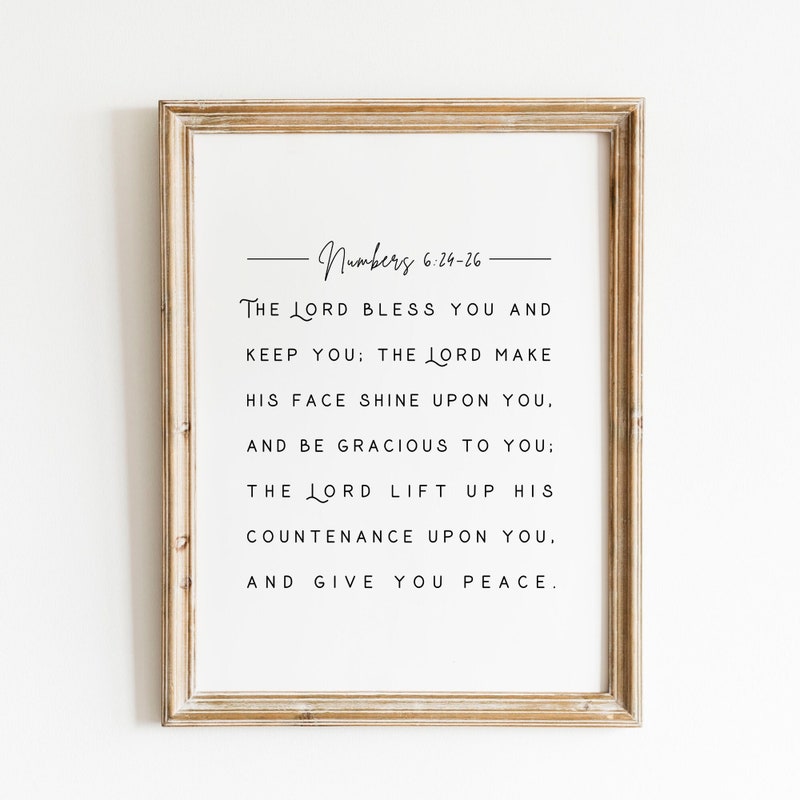 Numbers 6:24-26
The Lord bless you and
keep you; the Lord make
his face shine upon you,
and be gracious to you;
the Lord lift up his
countenance upon you,
and give you peace.